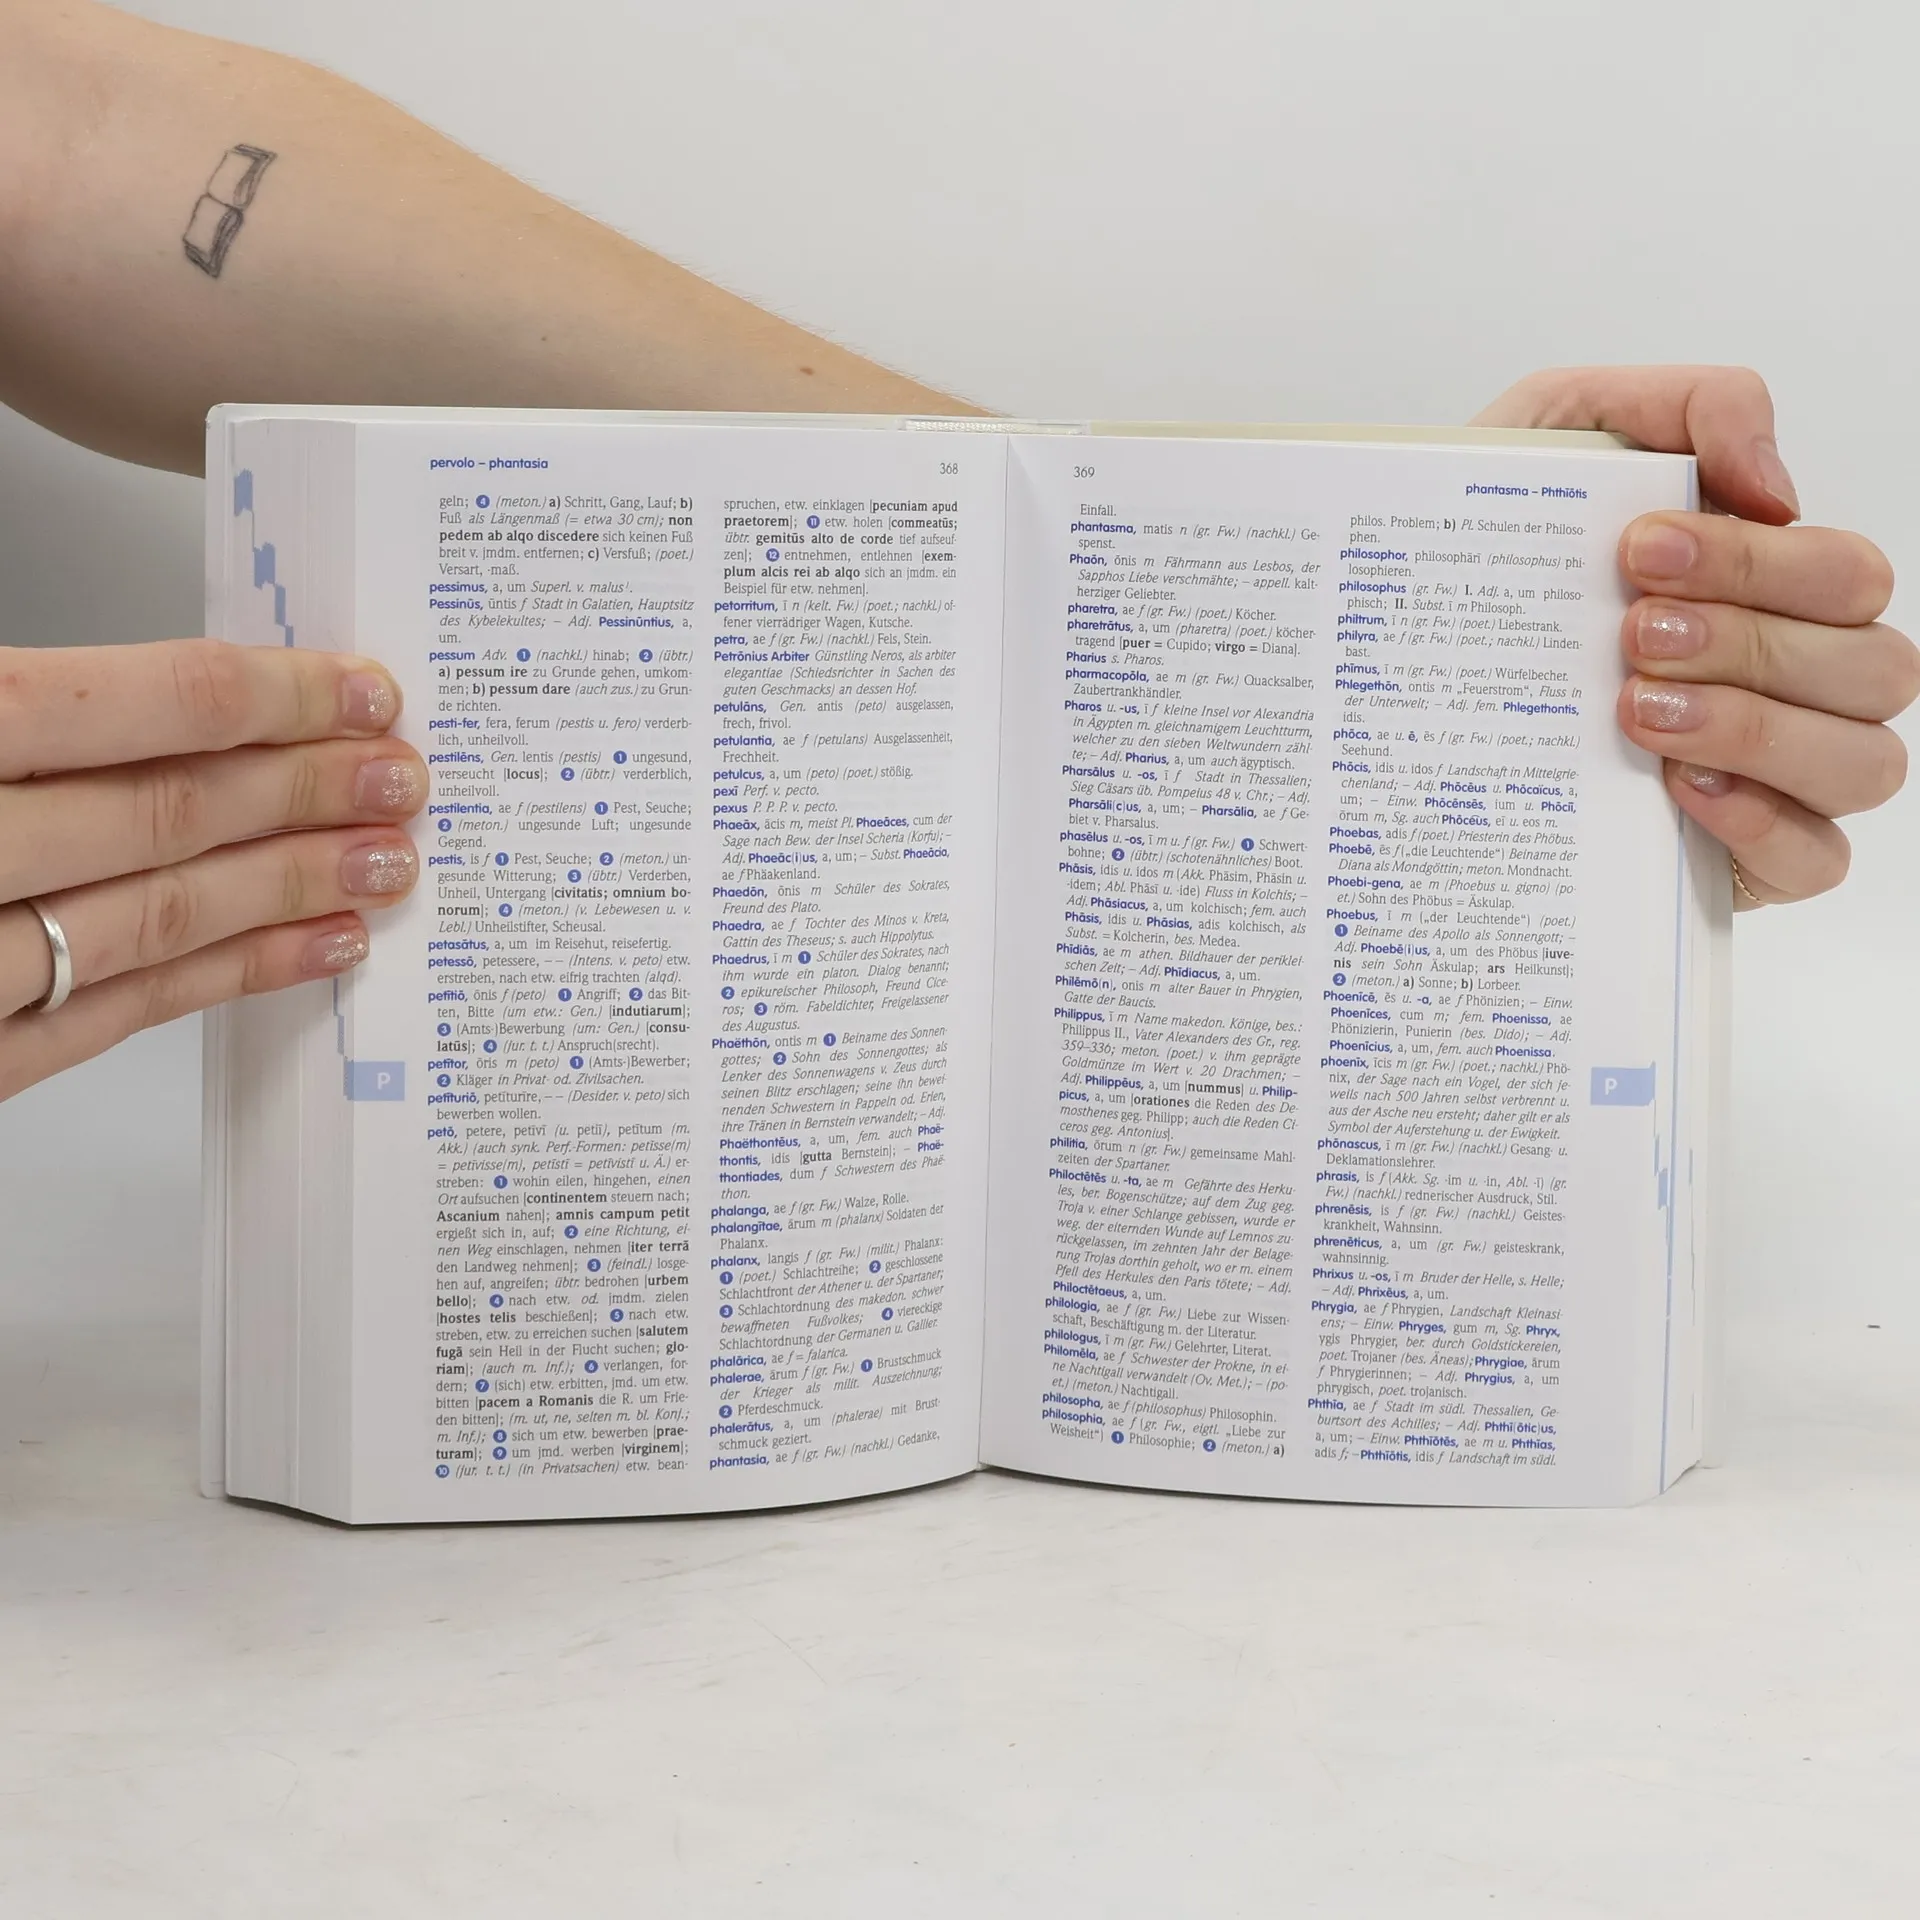 pervolo – phantasia
368
geln; ❹ (meton.) a) Schritt, Gang, Lauf; b)
Fuß als Längenmaß (= etwa 30 cm); non
pedem ab alqo discedere sich keinen Fuß
breit v. jmdm. entfernen; c) Versfuß; (poet.)
Versart, -maß.
pessimus, a, um Superl. v. malus¹.
Pessinūs, ūntis f Stadt in Galatien, Hauptsitz
des Kybelekultes; – Adj. Pessinūntius, a,
um.
pessum Adv. ❶ (nachkl.) hinab; ❷ (übtr.)
a) pessum ire zu Grunde gehen, umkom-
men; b) pessum dare (auch zus.) zu Grun-
de richten.
pesti-fer, fera, ferum (pestis u. fero) verderb-
lich, unheilvoll.
pestilēns, Gen. lentis (pestis) ❶ ungesund,
verseucht |locus|; ❷ (übtr.) verderblich,
unheilvoll.
pestilentia, ae f (pestilens) ❶ Pest, Seuche;
❷ (meton.) ungesunde Luft; ungesunde
Gegend.
pestis, is f ❶ Pest, Seuche; ❷ (meton.) un-
gesunde Witterung; ❸ (übtr.) Verderben,
Unheil, Untergang |civitatis; omnium bo-
norum|; ❹ (meton.) (v. Lebewesen u. v.
Lebl.) Unheilstifter, Scheusal.
petasātus, a, um im Reisehut, reisefertig.
petessō, petessere, – – (Intens. v. peto) etw.
erstreben, nach etw. eifrig trachten (alqd).
petītiō, ōnis f (peto) ❶ Angriff; ❷ das Bit-
ten, Bitte (um etw.: Gen.) |indutiarum|;
❸ (Amts-)Bewerbung (um: Gen.) |consu-
latūs|; ❹ (jur. t. t.) Anspruch(srecht).
petītor, ōris m (peto) ❶ (Amts-)Bewerber;
❷ Kläger in Privat- od. Zivilsachen.
petīturiō, petīturīre, – – (Desider. v. peto) sich
bewerben wollen.
petō, petere, petīvī (u. petiī), petītum (m.
Akk.) (auch synk. Perf.-Formen: petīsse(m)
= petīvisse(m), petīstī = petīvistī u. Ä.) er-
streben: ❶ wohin eilen, hingehen, einen
Ort aufsuchen |continentem steuern nach;
Ascanium nahen|; amnis campum petit
ergießt sich in, auf; ❷ eine Richtung, ei-
nen Weg einschlagen, nehmen |iter terrā
den Landweg nehmen|; ❸ (feindl.) losge-
hen auf, angreifen; übtr. bedrohen |urbem
bello|; ❹ nach etw. od. jmdm. zielen
|hostes telis beschießen|; ❺ nach etw.
streben, etw. zu erreichen suchen |salutem
fugā sein Heil in der Flucht suchen; glo-
riam|; (auch m. Inf.); ❻ verlangen, for-
dern; ❼ (sich) etw. erbitten, jmd. um etw.
bitten |pacem a Romanis die R. um Frie-
den bitten|; (m. ut, ne, selten m. bl. Konj.;
m. Inf.); ❽ sich um etw. bewerben |prae-
turam|; ❾ um jmd. werben |virginem|;
❿ (jur. t. t.) (in Privatsachen) etw. bean-
spruchen, etw. einklagen |pecuniam apud
praetorem|; ⓫ etw. holen |commeatūs;
übtr. gemitūs alto de corde tief aufseuf-
zen|; ⓬ entnehmen, entlehnen |exem-
plum alcis rei ab alqo sich an jmdm. ein
Beispiel für etw. nehmen|.
petorritum, ī n (kelt. Fw.) (poet.; nachkl.) of-
fener vierrädriger Wagen, Kutsche.
petra, ae f (gr. Fw.) (nachkl.) Fels, Stein.
Petrōnius Arbiter Günstling Neros, als arbiter
elegantiae (Schiedsrichter in Sachen des
guten Geschmacks) an dessen Hof.
petulāns, Gen. antis (peto) ausgelassen,
frech, frivol.
petulantia, ae f (petulans) Ausgelassenheit,
Frechheit.
petulcus, a, um (peto) (poet.) stößig.
pexī Perf. v. pecto.
pexus P. P. P. v. pecto.
Phaeāx, ācis m, meist Pl. Phaeāces, cum der
Sage nach Bew. der Insel Scheria (Korfu); –
Adj. Phaeāc|i|us, a, um; – Subst. Phaeācia,
ae f Phäakenland.
Phaedōn, ōnis m Schüler des Sokrates,
Freund des Plato.
Phaedra, ae f Tochter des Minos v. Kreta,
Gattin des Theseus; s. auch Hippolytus.
Phaedrus, ī m ❶ Schüler des Sokrates, nach
ihm wurde ein platon. Dialog benannt;
❷ epikureischer Philosoph, Freund Cice-
ros; ❸ röm. Fabeldichter, Freigelassener
des Augustus.
Phaëthōn, ontis m ❶ Beiname des Sonnen-
gottes; ❷ Sohn des Sonnengottes; als
Lenker des Sonnenwagens v. Zeus durch
seinen Blitz erschlagen; seine ihn bewei-
nenden Schwestern in Pappeln od. Erlen,
ihre Tränen in Bernstein verwandelt; – Adj.
Phaëthontēus, a, um, fem. auch Phaë-
thontis, idis |gutta Bernstein|; – Phaë-
thontiades, dum f Schwestern des Phaë-
thon.
phalanga, ae f (gr. Fw.) Walze, Rolle.
phalangītae, ārum m (phalanx) Soldaten der
Phalanx.
phalanx, langis f (gr. Fw.) (milit.) Phalanx:
❶ (poet.) Schlachtreihe; ❷ geschlossene
Schlachtfront der Athener u. der Spartaner;
❸ Schlachtordnung des makedon. schwer
bewaffneten Fußvolkes; ❹ viereckige
Schlachtordnung der Germanen u. Gallier.
phalārica, ae f = falarica.
phalerae, ārum f (gr. Fw.) ❶ Brustschmuck
der Krieger als milit. Auszeichnung;
❷ Pferdeschmuck.
phalerātus, a, um (phalerae) mit Brust-
schmuck geziert.
phantasia, ae f (gr. Fw.) (nachkl.) Gedanke,
P
369
phantasma – Phthīōtis
Einfall.
phantasma, matis n (gr. Fw.) (nachkl.) Ge-
spenst.
Phaōn, ōnis m Fährmann aus Lesbos, der
Sapphos Liebe verschmähte; – appell. kalt-
herziger Geliebter.
pharetra, ae f (gr. Fw.) (poet.) Köcher.
pharetrātus, a, um (pharetra) (poet.) köcher-
tragend |puer = Cupido; virgo = Diana|.
Pharius s. Pharos.
pharmacopōla, ae m (gr. Fw.) Quacksalber,
Zaubertrankhändler.
Pharos u. -us, ī f kleine Insel vor Alexandria
in Ägypten m. gleichnamigem Leuchtturm,
welcher zu den sieben Weltwundern zähl-
te; – Adj. Pharius, a, um auch ägyptisch.
Pharsālus u. -os, ī f Stadt in Thessalien;
Sieg Cäsars üb. Pompeius 48 v. Chr.; – Adj.
Pharsāli|c|us, a, um; – Pharsālia, ae f Ge-
biet v. Pharsalus.
phasēlus u. -os, ī m u. f (gr. Fw.) ❶ Schwert-
bohne; ❷ (übtr.) (schotenähnliches) Boot.
Phāsis, idis u. idos m (Akk. Phāsim, Phāsin u.
-idem; Abl. Phāsī u. -ide) Fluss in Kolchis; –
Adj. Phāsiacus, a, um kolchisch; fem. auch
Phāsis, idis u. Phāsias, adis kolchisch, als
Subst. = Kolcherin, bes. Medea.
Phīdiās, ae m athen. Bildhauer der periklei-
schen Zeit; – Adj. Phīdiacus, a, um.
Philēmō|n|, onis m alter Bauer in Phrygien,
Gatte der Baucis.
Philippus, ī m Name makedon. Könige, bes.:
Philippus II., Vater Alexanders des Gr., reg.
359–336; meton. (poet.) v. ihm geprägte
Goldmünze im Wert v. 20 Drachmen; –
Adj. Philippēus, a, um |nummus| u. Philip-
picus, a, um |orationes die Reden des De-
mosthenes geg. Philipp; auch die Reden Ci-
ceros geg. Antonius|.
philitia, ōrum n (gr. Fw.) gemeinsame Mahl-
zeiten der Spartaner.
Philoctētēs u. -ta, ae m Gefährte des Herku-
les, ber. Bogenschütze; auf dem Zug geg.
Troja v. einer Schlange gebissen, wurde er
weg. der eiternden Wunde auf Lemnos zu-
rückgelassen, im zehnten Jahr der Belage-
rung Trojas dorthin geholt, wo er m. einem
Pfeil des Herkules den Paris tötete; – Adj.
Philoctētaeus, a, um.
philologia, ae f (gr. Fw.) Liebe zur Wissen-
schaft, Beschäftigung m. der Literatur.
philologus, ī m (gr. Fw.) Gelehrter, Literat.
Philomēla, ae f Schwester der Prokne, in ei-
ne Nachtigall verwandelt (Ov. Met.); – (po-
et.) (meton.) Nachtigall.
philosopha, ae f (philosophus) Philosophin.
philosophia, ae f (gr. Fw., eigtl. „Liebe zur
Weisheit“) ❶ Philosophie; ❷ (meton.) a)
philos. Problem; b) Pl. Schulen der Philoso-
phen.
philosophor, philosophārī (philosophus) phi-
losophieren.
philosophus (gr. Fw.) I. Adj. a, um philoso-
phisch; II. Subst. ī m Philosoph.
philtrum, ī n (gr. Fw.) (poet.) Liebestrank.
philyra, ae f (gr. Fw.) (poet.; nachkl.) Linden-
bast.
phīmus, ī m (gr. Fw.) (poet.) Würfelbecher.
Phlegethōn, ontis m „Feuerstrom“, Fluss in
der Unterwelt; – Adj. fem. Phlegethontis,
idis.
phōca, ae u. ē, ēs f (gr. Fw.) (poet.; nachkl.)
Seehund.
Phōcis, idis u. idos f Landschaft in Mittelgrie-
chenland; – Adj. Phōcēus u. Phōcaïcus, a,
um; – Einw. Phōcēnsēs, ium u. Phōciī,
ōrum m, Sg. auch Phōcēüs, eī u. eos m.
Phoebas, adis f (poet.) Priesterin des Phöbus.
Phoebē, ēs f („die Leuchtende“) Beiname der
Diana als Mondgöttin; meton. Mondnacht.
Phoebi-gena, ae m (Phoebus u. gigno) (po-
et.) Sohn des Phöbus = Äskulap.
Phoebus, ī m („der Leuchtende“) (poet.)
❶ Beiname des Apollo als Sonnengott; –
Adj. Phoebē|i|us, a, um des Phöbus |iuve-
nis sein Sohn Äskulap; ars Heilkunst|;
❷ (meton.) a) Sonne; b) Lorbeer.
Phoenīcē, ēs u. -a, ae f Phönizien; – Einw.
Phoenīces, cum m; fem. Phoenissa, ae
Phönizierin, Punierin (bes. Dido); – Adj.
Phoenīcius, a, um, fem. auch Phoenissa.
phoenīx, īcis m (gr. Fw.) (poet.; nachkl.) Phö-
nix, der Sage nach ein Vogel, der sich je-
weils nach 500 Jahren selbst verbrennt u.
aus der Asche neu ersteht; daher gilt er als
Symbol der Auferstehung u. der Ewigkeit.
phōnascus, ī m (gr. Fw.) (nachkl.) Gesang- u.
Deklamationslehrer.
phrasis, is f (Akk. Sg. -im u. -in, Abl. -ī) (gr.
Fw.) (nachkl.) rednerischer Ausdruck, Stil.
phrenēsis, is f (gr. Fw.) (nachkl.) Geistes-
krankheit, Wahnsinn.
phrenēticus, a, um (gr. Fw.) geisteskrank,
wahnsinnig.
Phrixus u. -os, ī m Bruder der Helle, s. Helle;
– Adj. Phrixēus, a, um.
Phrygia, ae f Phrygien, Landschaft Kleinasi-
ens; – Einw. Phryges, gum m, Sg. Phryx,
ygis Phrygier, ber. durch Goldstickereien,
poet. Trojaner (bes. Äneas); Phrygiae, ārum
f Phrygierinnen; – Adj. Phrygius, a, um
phrygisch, poet. trojanisch.
Phthīa, ae f Stadt im südl. Thessalien, Ge-
burtsort des Achilles; – Adj. Phthī|ōtic|us,
a, um; – Einw. Phthīōtēs, ae m u. Phthīas,
adis f; – Phthīōtis, idis f Landschaft im südl.
P